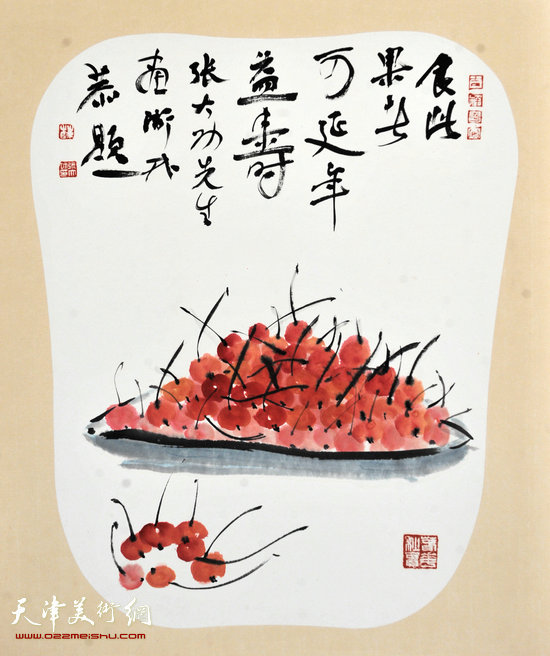 食此
果者
可延年
益寿
张大功先生
画师戎
恭题
天津美術網
www.022meishu.com